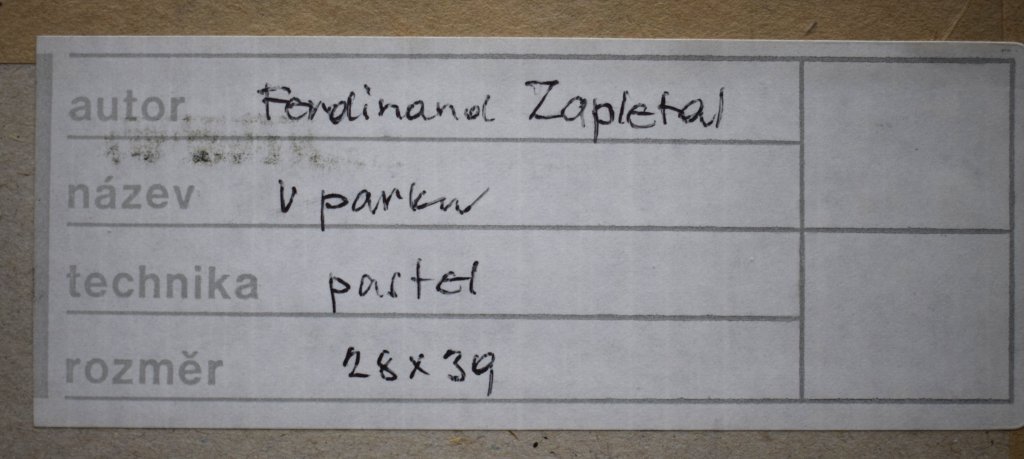 autor Ferdinand Zapletal
název V parku
technika pastel
rozměr 28x39